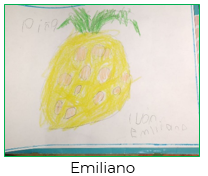 Piña
Ivan
Emiliano
Emiliano